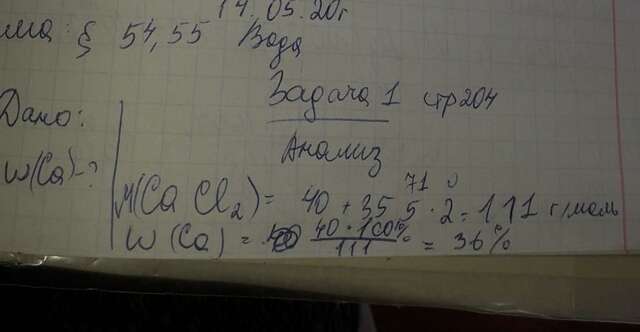 14.05.20г
ма: § 54,55 Вода
Задача 1 стр 204
Дано:
Анализ
W(Ca)-?
71
M(CaCl₂)= 40 + 35 5 · 2 = 111 г/моль
W(Ca) = 40 · 100% / 111 = 36%